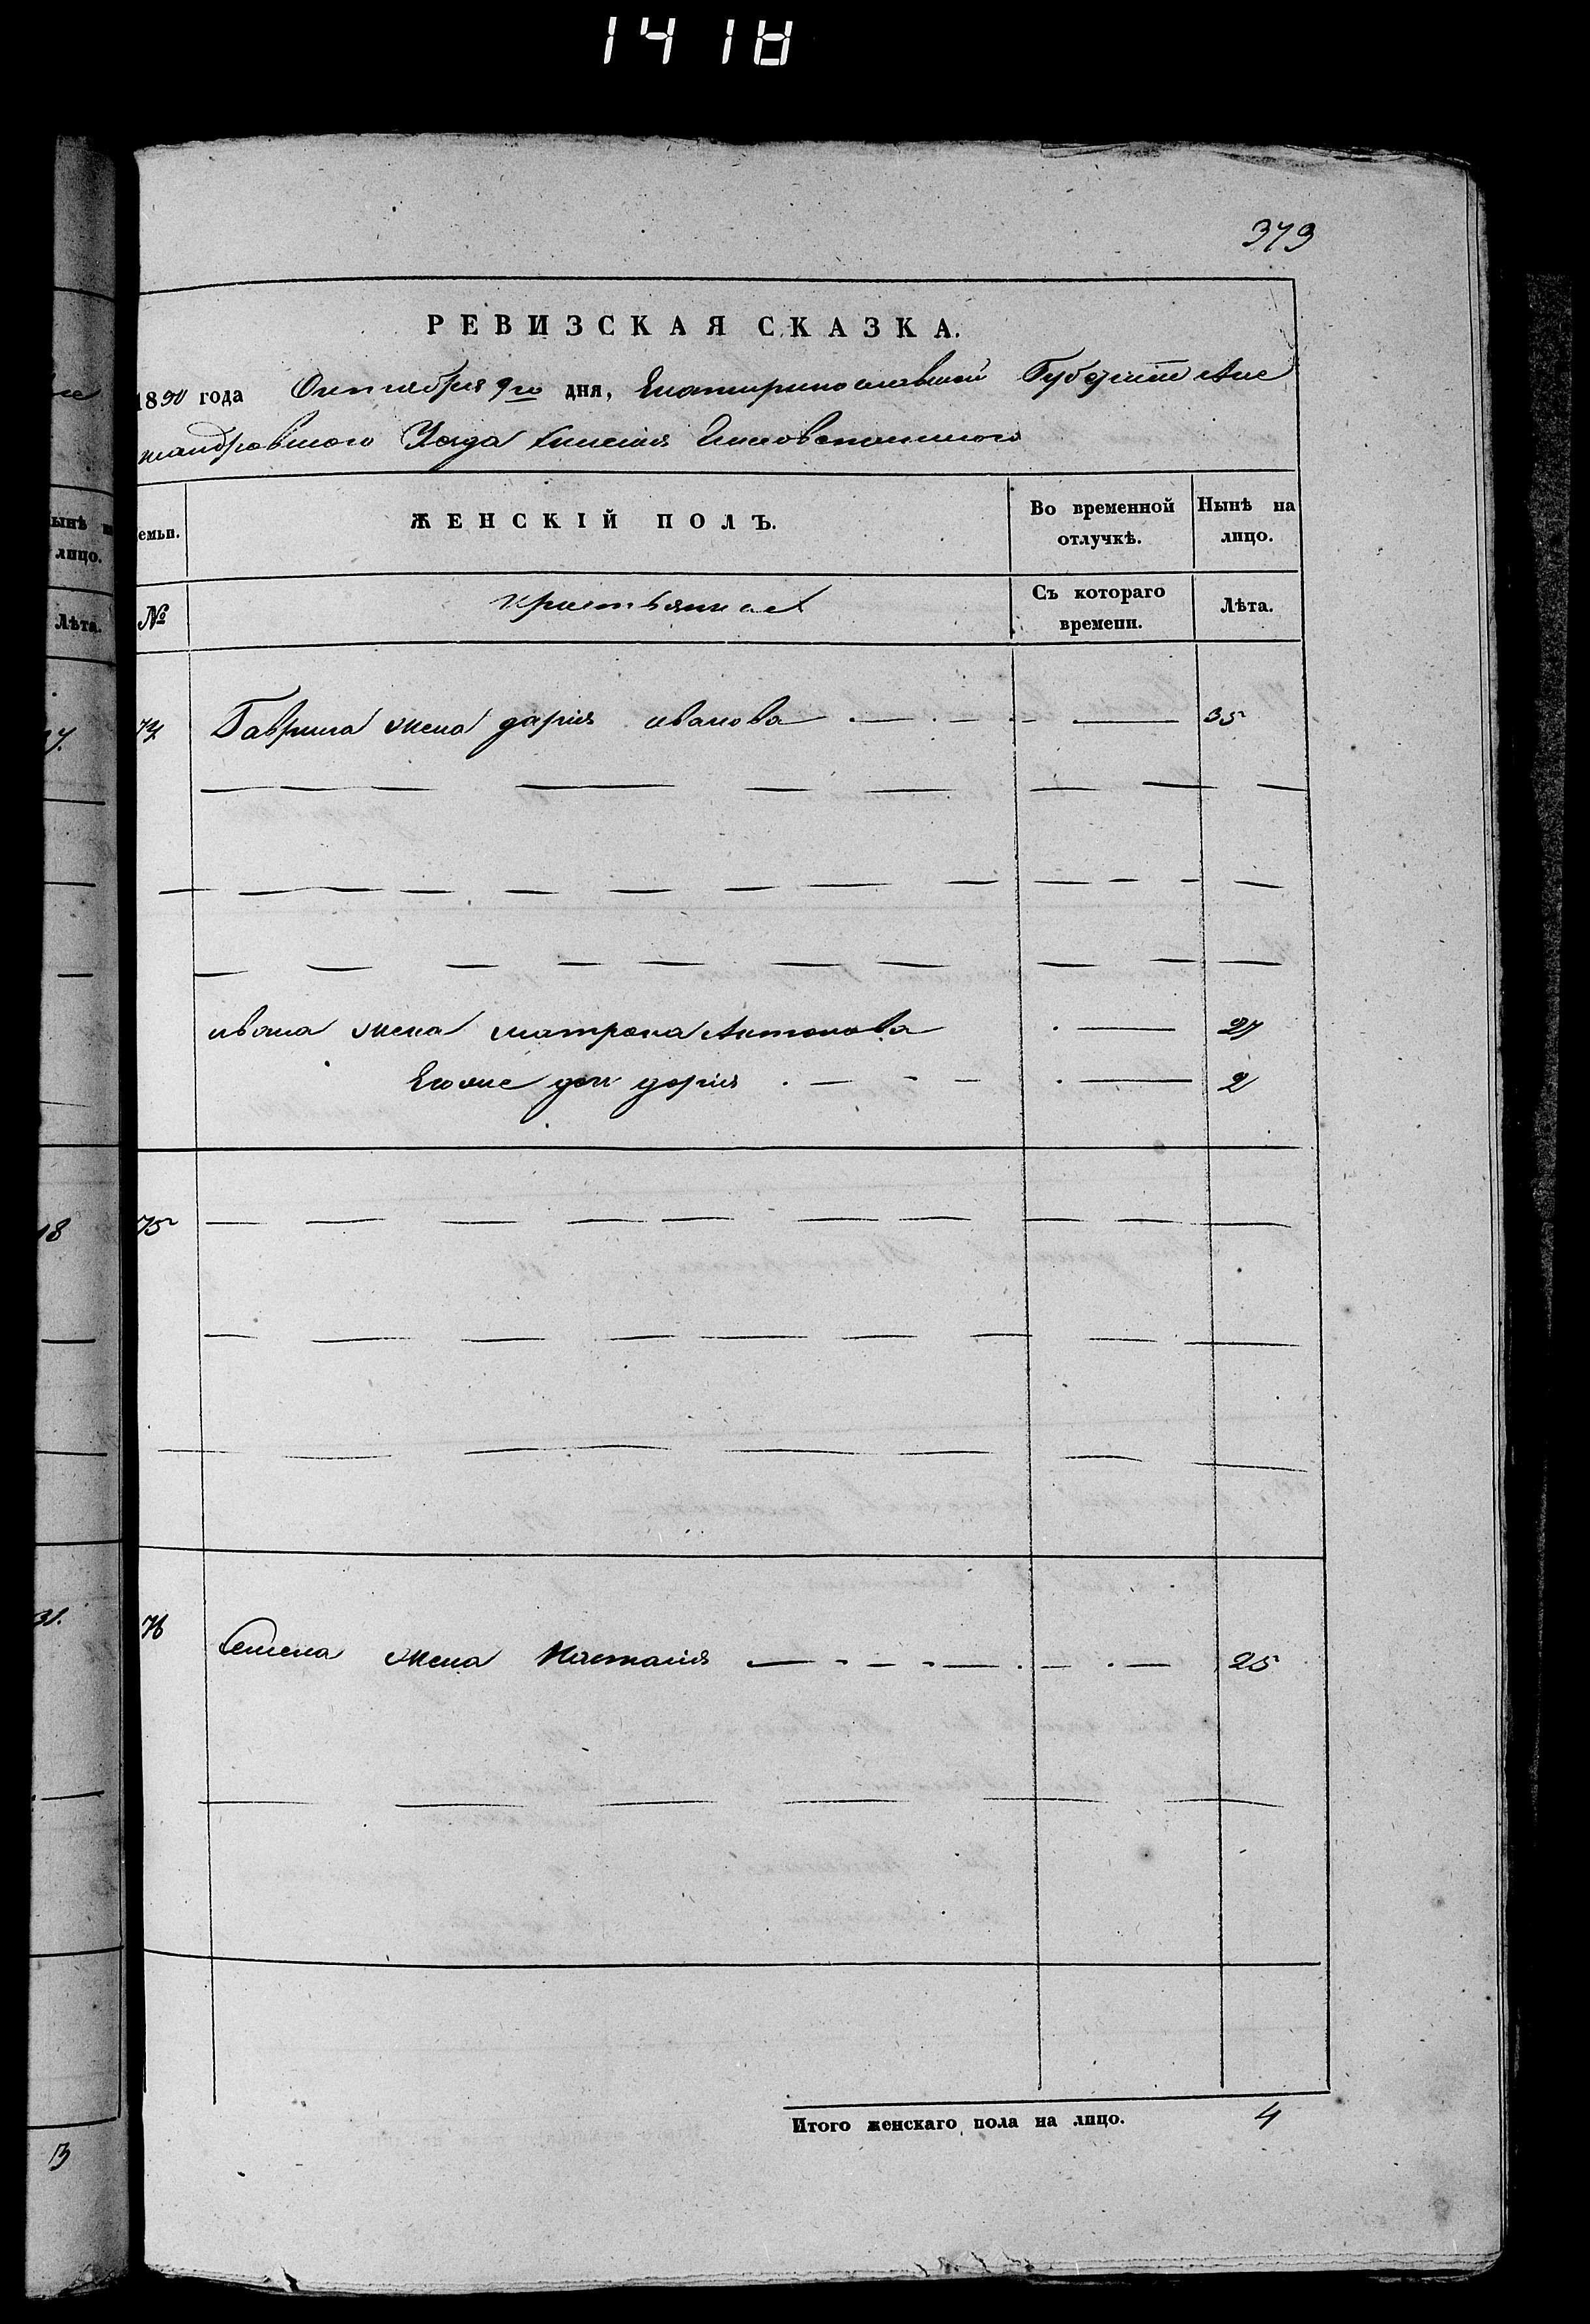 1418
379
РЕВИЗСКАЯ СКАЗКА.
1850 года Октября 9го дня, Екатиринославской Губернии Але
ксандровского Уезда
емьи.
ЖЕНСКІЙ ПОЛЪ.
Во временной отлучкѣ.
Нынѣ на лицо.
№
Крестьянка
Съ котораго времени.
Лѣта.
74 Гаврила жена дария иванова 35
ивана жена матрона Антонова 27
Ево же доч дария 2
75
76 Семена жена Наталия 25
Итого женскаго пола на лицо. 4
ынѣ
лицо.
Лѣта.
18
31.
13